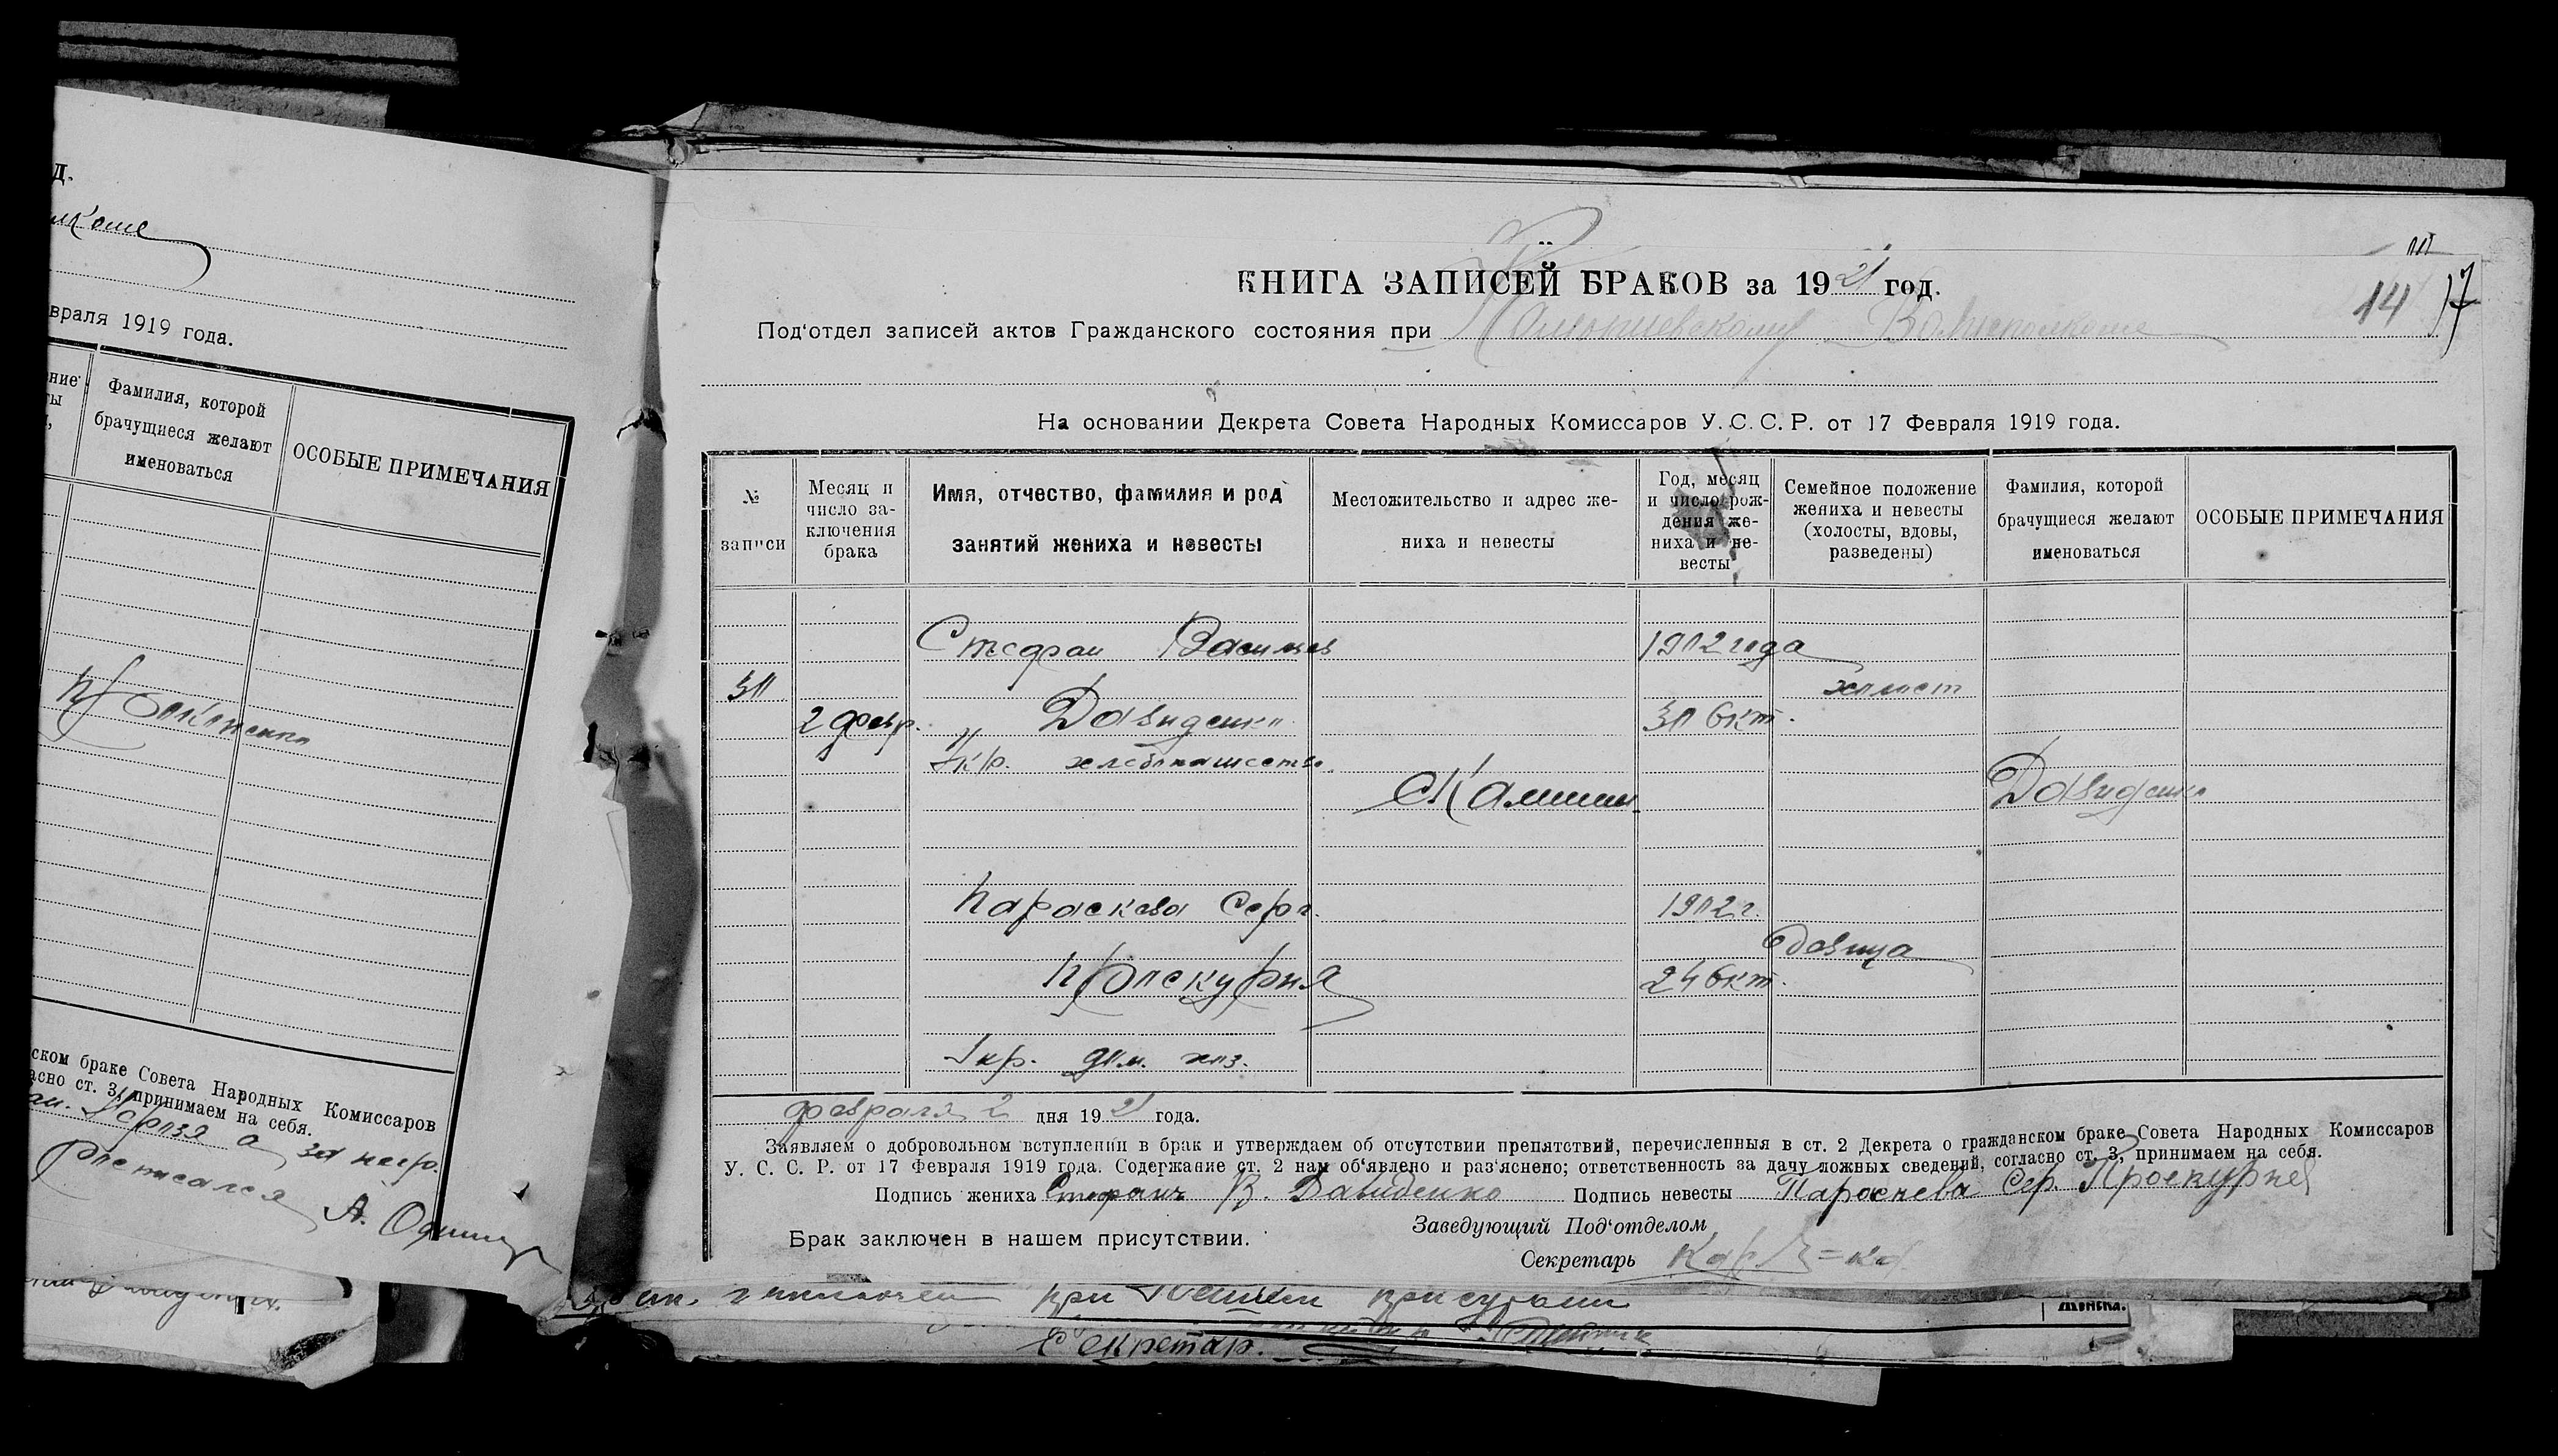 д.
лкоме
враля 1919 года.
ние
ты
Фамилия, которой
брачущиеся желают
именоваться
ОСОБЫЕ ПРИМЕЧАНИЯ
ском браке Совета Народных Комиссаров
асно ст. 3, принимаем на себя.
а за негр.
росписался А.
КНИГА ЗАПИСЕЙ БРАКОВ за 1921 год.
14 17
Под'отдел записей актов Гражданского состояния при Волисполкоме
На основании Декрета Совета Народных Комиссаров У. С. С. Р. от 17 Февраля 1919 года.
№
записи
Месяц и
число за-
ключения
брака
Имя, отчество, фамилия и род
занятий жениха и невесты
Местожительство и адрес же-
ниха и невесты
Год, месяц
и число рож-
дения же-
ниха и не-
весты
Семейное положение
жениха и невесты
(холосты, вдовы,
разведены)
Фамилия, которой
брачущиеся желают
именоваться
ОСОБЫЕ ПРИМЕЧАНИЯ
Стефан Васильев 1902 года
30 холост
2 февр. Давиденко 30 Окт.
Укр. хлебопашество
Давиденко
Параскева Серг. 1902 г.
вдовица
Проскурня 24 Окт.
Укр. дом. хоз.
февраля 2 дня 1921 года.
Заявляем о добровольном вступлении в брак и утверждаем об отсутствии препятствий, перечисленныя в ст. 2 Декрета о гражданском браке Совета Народных Комиссаров
У. С. С. Р. от 17 Февраля 1919 года. Содержание ст. 2 нам об'явлено и раз'яснено; ответственность за дачу ложных сведений, согласно ст. 3, принимаем на себя.
Подпись жениха Стефанъ В. Давиденко Подпись невесты Параскева Сер. Проскурня
Заведующий Под'отделом
Брак заключен в нашем присутствии.
Секретарь
при
Секретар.